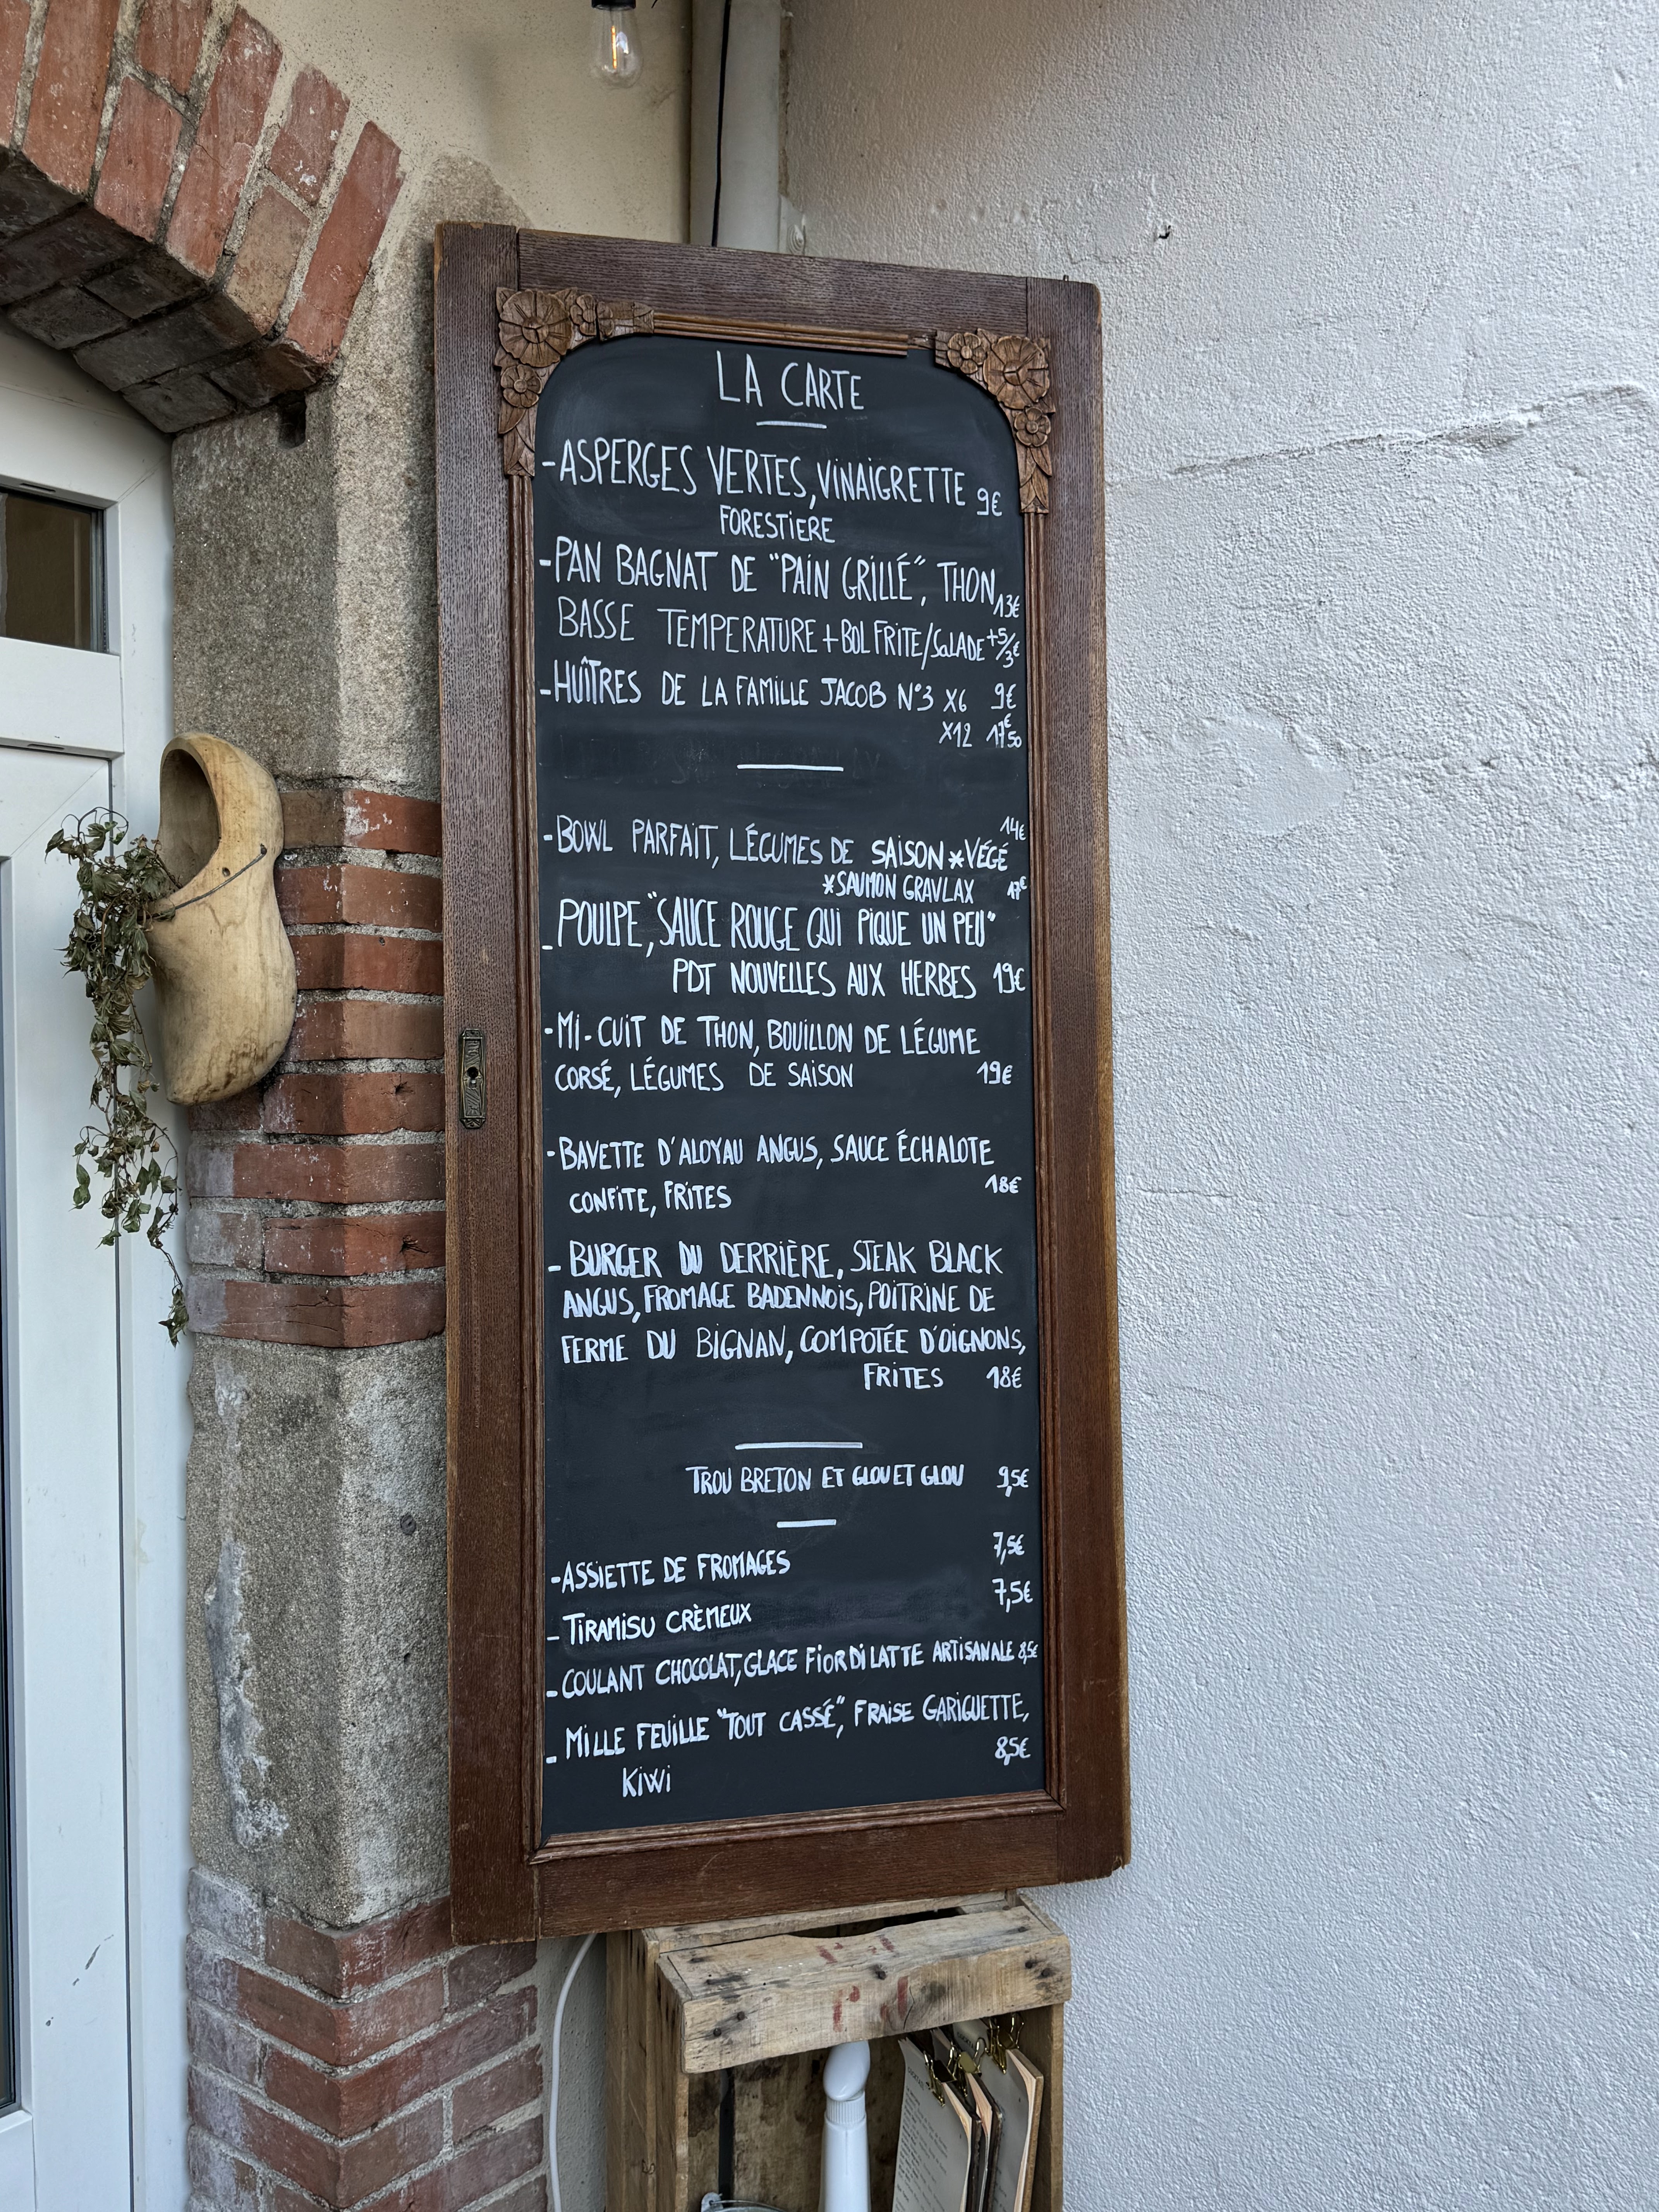 LA CARTE
-ASPERGES VERTES, VINAIGRETTE 9€
FORESTIERE
-PAN BAGNAT DE "PAIN GRILLÉ", THON 13€
BASSE TEMPERATURE + BOL FRITE/SALADE +5/3€
-HUÎTRES DE LA FAMILLE JACOB N°3 X6 9€
X12 17€50
-BOWL PARFAIT, LÉGUMES DE SAISON *VÉGÉ 14€
*SAUMON GRAVLAX 17€
-POULPE, "SAUCE ROUGE QUI PIQUE UN PEU"
PDT NOUVELLES AUX HERBES 19€
-MI-CUIT DE THON, BOUILLON DE LÉGUME
CORSÉ, LÉGUMES DE SAISON 19€
-BAVETTE D'ALOYAU ANGUS, SAUCE ÉCHALOTE
CONFITE, FRITES 18€
-BURGER DU DERRIÈRE, STEAK BLACK
ANGUS, FROMAGE BADENNOIS, POITRINE DE
FERME DU BIGNAN, COMPOTÉE D'OIGNONS,
FRITES 18€
TROU BRETON ET GLOU ET GLOU 9,5€
-ASSIETTE DE FROMAGES 7,5€
-TIRAMISU CRÈMEUX 7,5€
-COULANT CHOCOLAT, GLACE FIOR DI LATTE ARTISANALE 8,5€
-MILLE FEUILLE "TOUT CASSÉ", FRAISE GARIGUETTE,
KIWI 8,5€